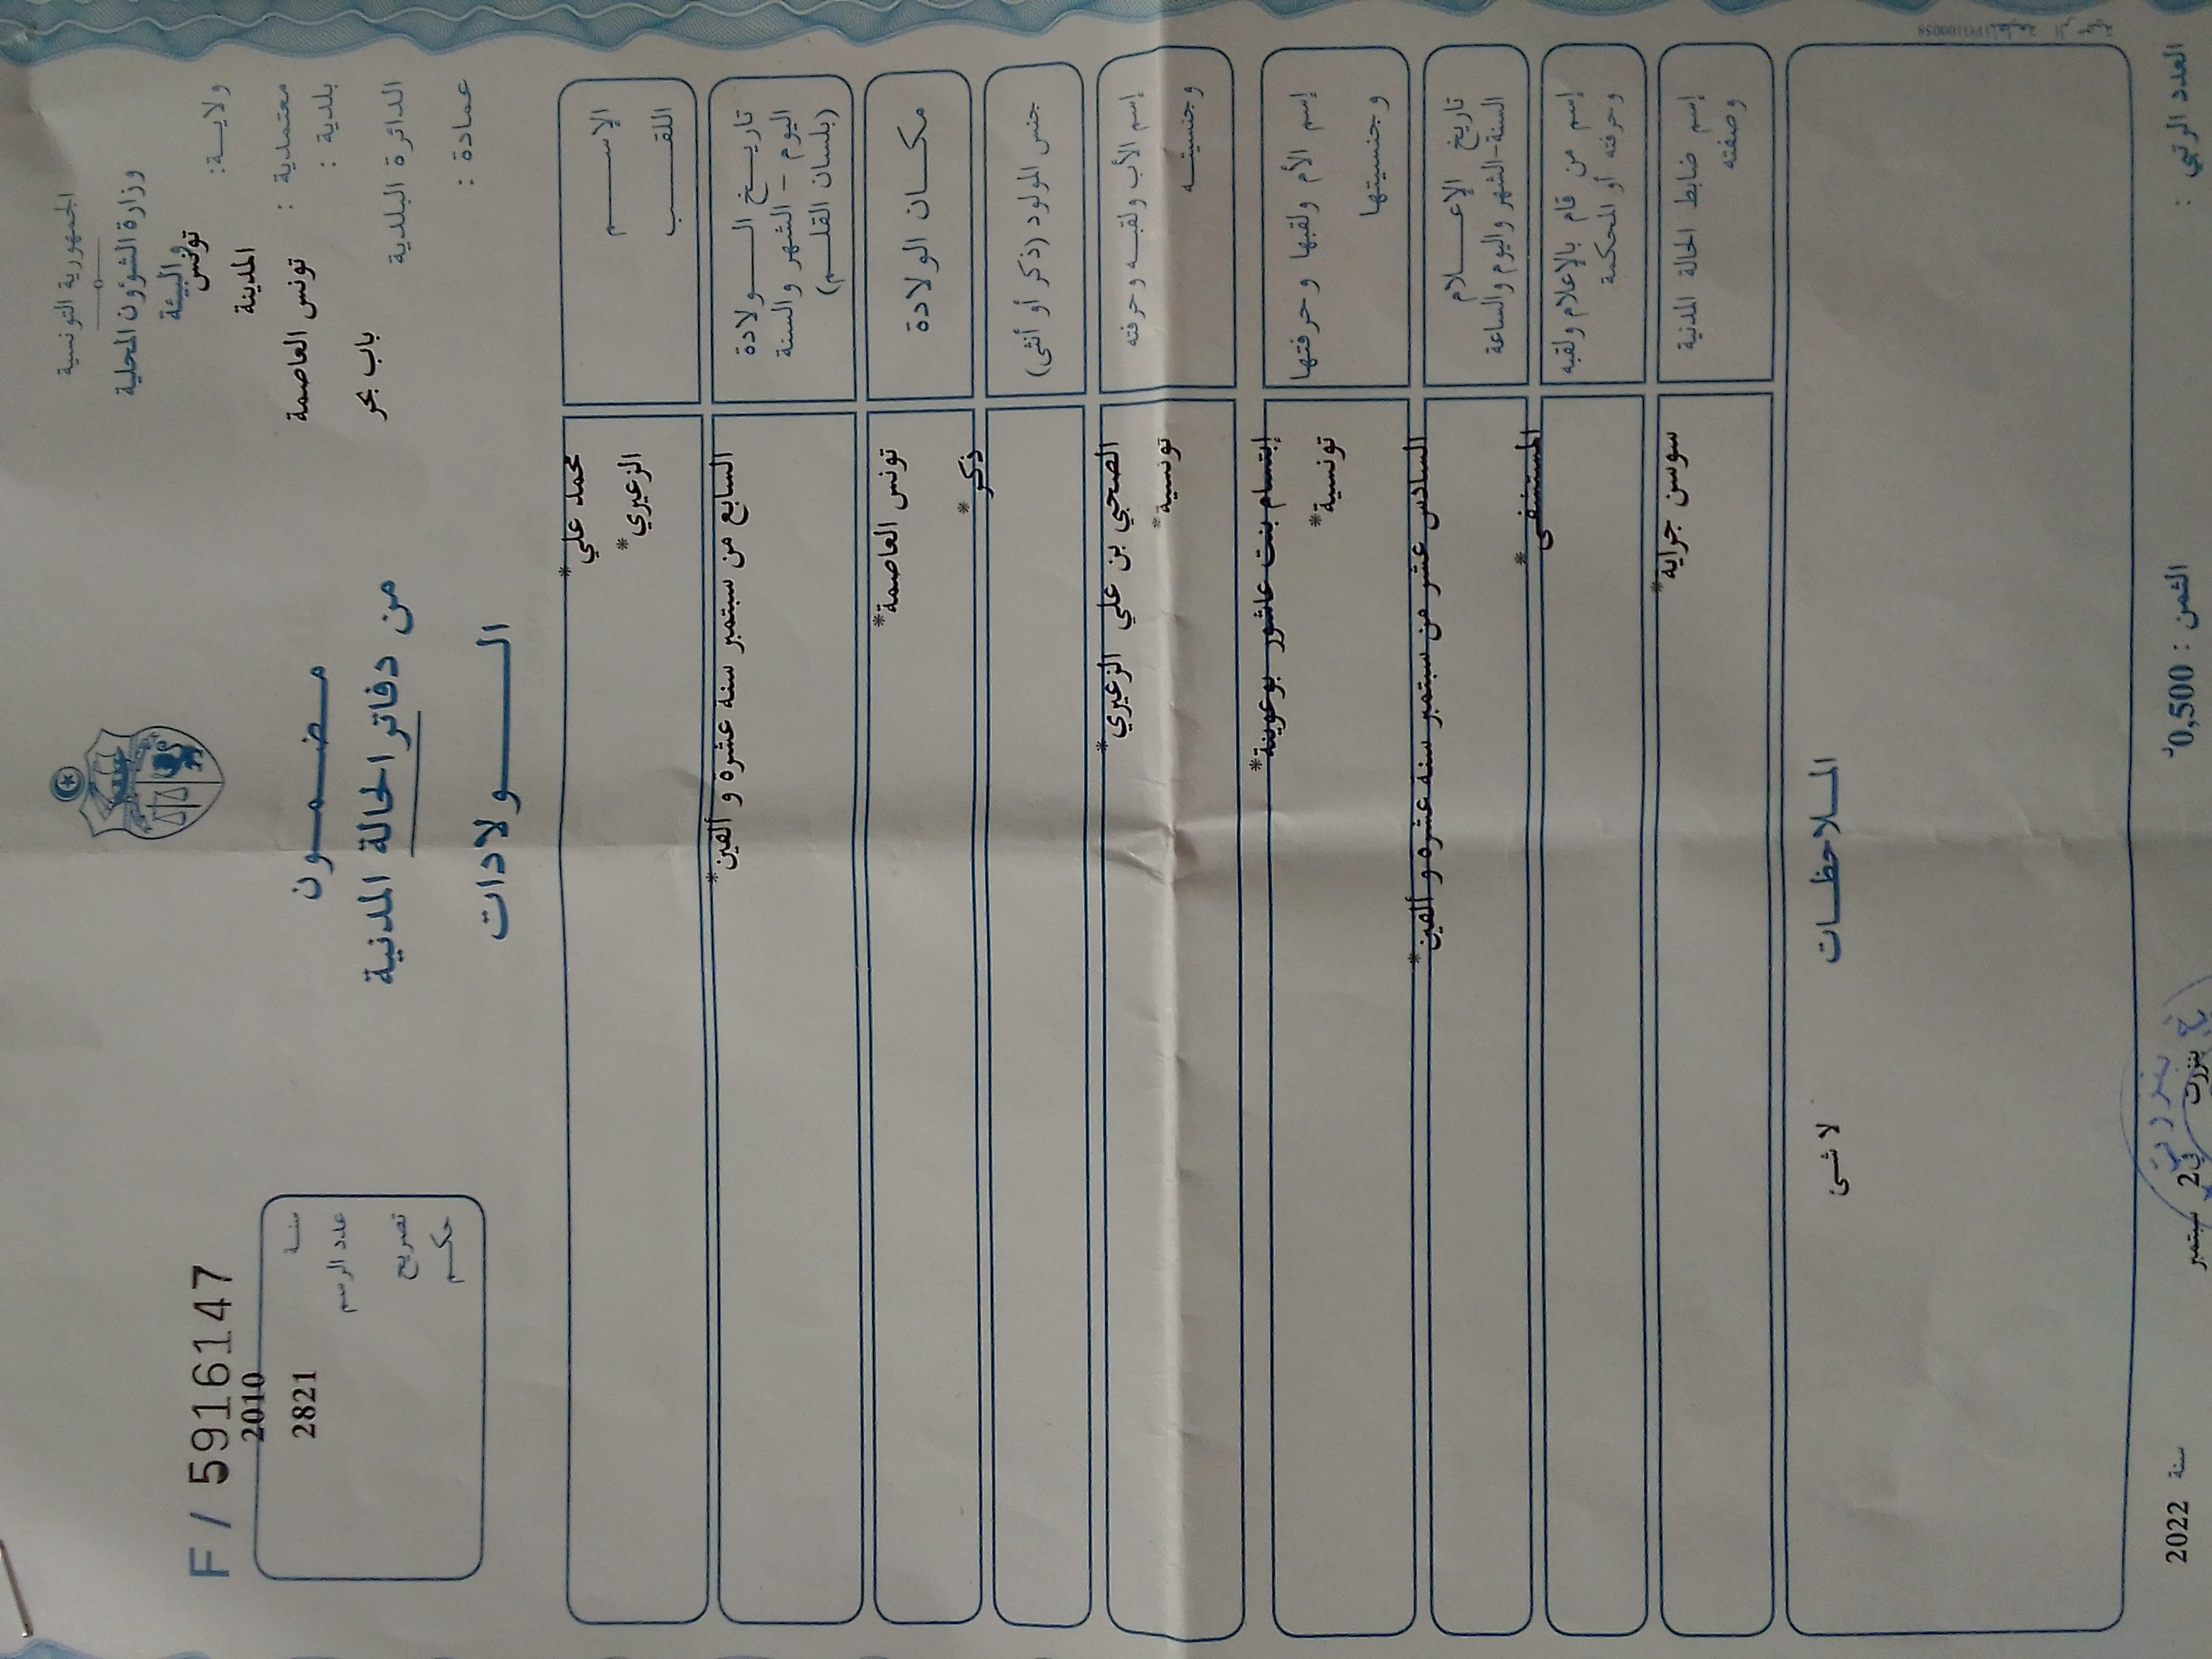 الجمهورية التونسية
وزارة الشؤون المحلية
والبيئة
ولايــة: تونس
معتمدية : المدينة
بلدية : تونس العاصمة
الدائرة البلدية باب بحر
عمادة :
مـضـمــون
من دفاتر الحالة المدنية
الــــولادات
F / 59166147
سنــة 2010
عدد الرسم 2821
تصريح
حكــم
الإســـم محمد علي*
اللقـــب الزعيري*
تاريــخ الـــولادة
اليوم - الشهر والسنة
(بلسان القلــم)
السابع من سبتمبر سنة عشرة و ألفين*
مكــان الولادة تونس العاصمة*
جنس المولود (ذكر أو أنثى) ذكر*
إسم الأب ولقبــه وحرفته الصحبي بن علي الزعيري*
وجنسيتــه تونسية*
إسم الأم ولقبها وحرفتها إبتسام بنت عاشور بوعوينة*
وجنسيتها تونسية*
تاريخ الإعـــلام
السنة-الشهر واليوم والساعة
السادس عشر من سبتمبر سنة عشرة و ألفين*
إسم من قام بالإعلام ولقبه
وحرفته أو المحكمة
المستشفى*
إسم ضابط الحالة المدنية
وصفته
سوسن جراية*
المــلاحظــات
لا شئ
العدد الرتبي :
الثمن : 0,500د
بنزرت في 2 سبتمبر
سنة 2022